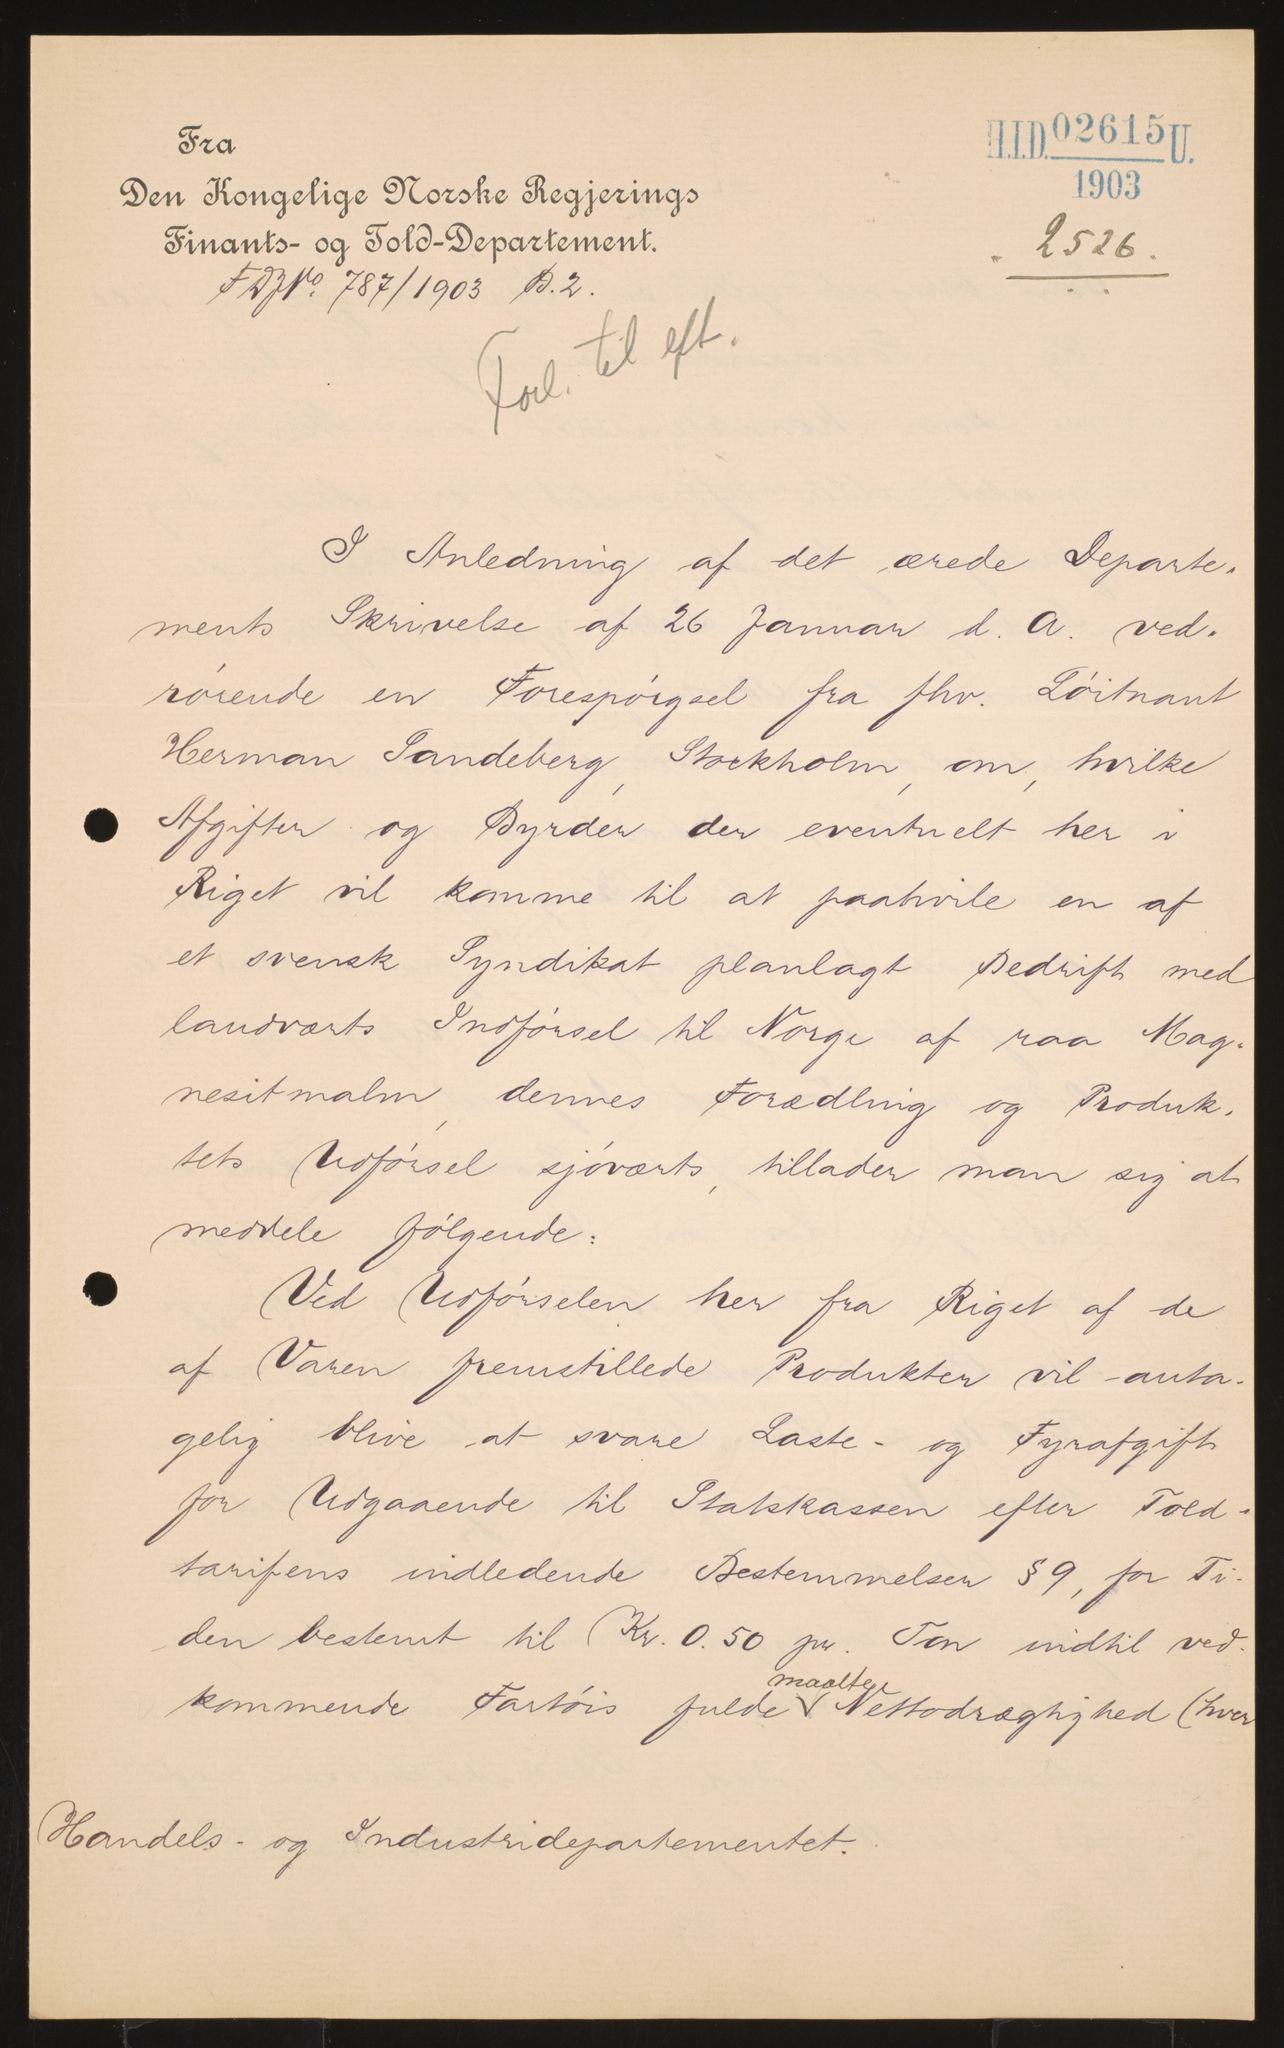 Fra
Den Kongelige Norske Regjerings
Finants- og Told-Departement.
FDJNo. 787/1903 B.2.
H.I.D. 02615 U.
1903
2526.
Forel. til eft.
I Anledning af det ærede Departe-
ments Skrivelse af 26 Januar d. A. ved-
rørende en Forespørgsel fra fhv. Løitnant
Herman Sandeberg, Stockholm, om, hvilke
Afgifter og Byrder der eventuelt her i
Riget vil komme til at paahvile en af
et svensk Syndikat planlagt Bedrift med
landværts Indførsel til Norge af raa Mag-
nesitmalm, dennes Forædling og Produk-
tets Udførsel sjøværts, tillader man sig at
meddele følgende:
Ved Udførselen her fra Riget af de
af Varen fremstillede Produkter vil anta-
gelig blive at svare Laste- og Fyrafgift
for Udgaaende til Statskassen efter Told-
tarifens indledende Bestemmelser § 9, for Ti-
den bestemt til Kr. 0.50 pr. Ton indtil ved-
kommende Fartøis fulde maalte Nettodrægtighed (hver
Handels- og Industridepartementet.